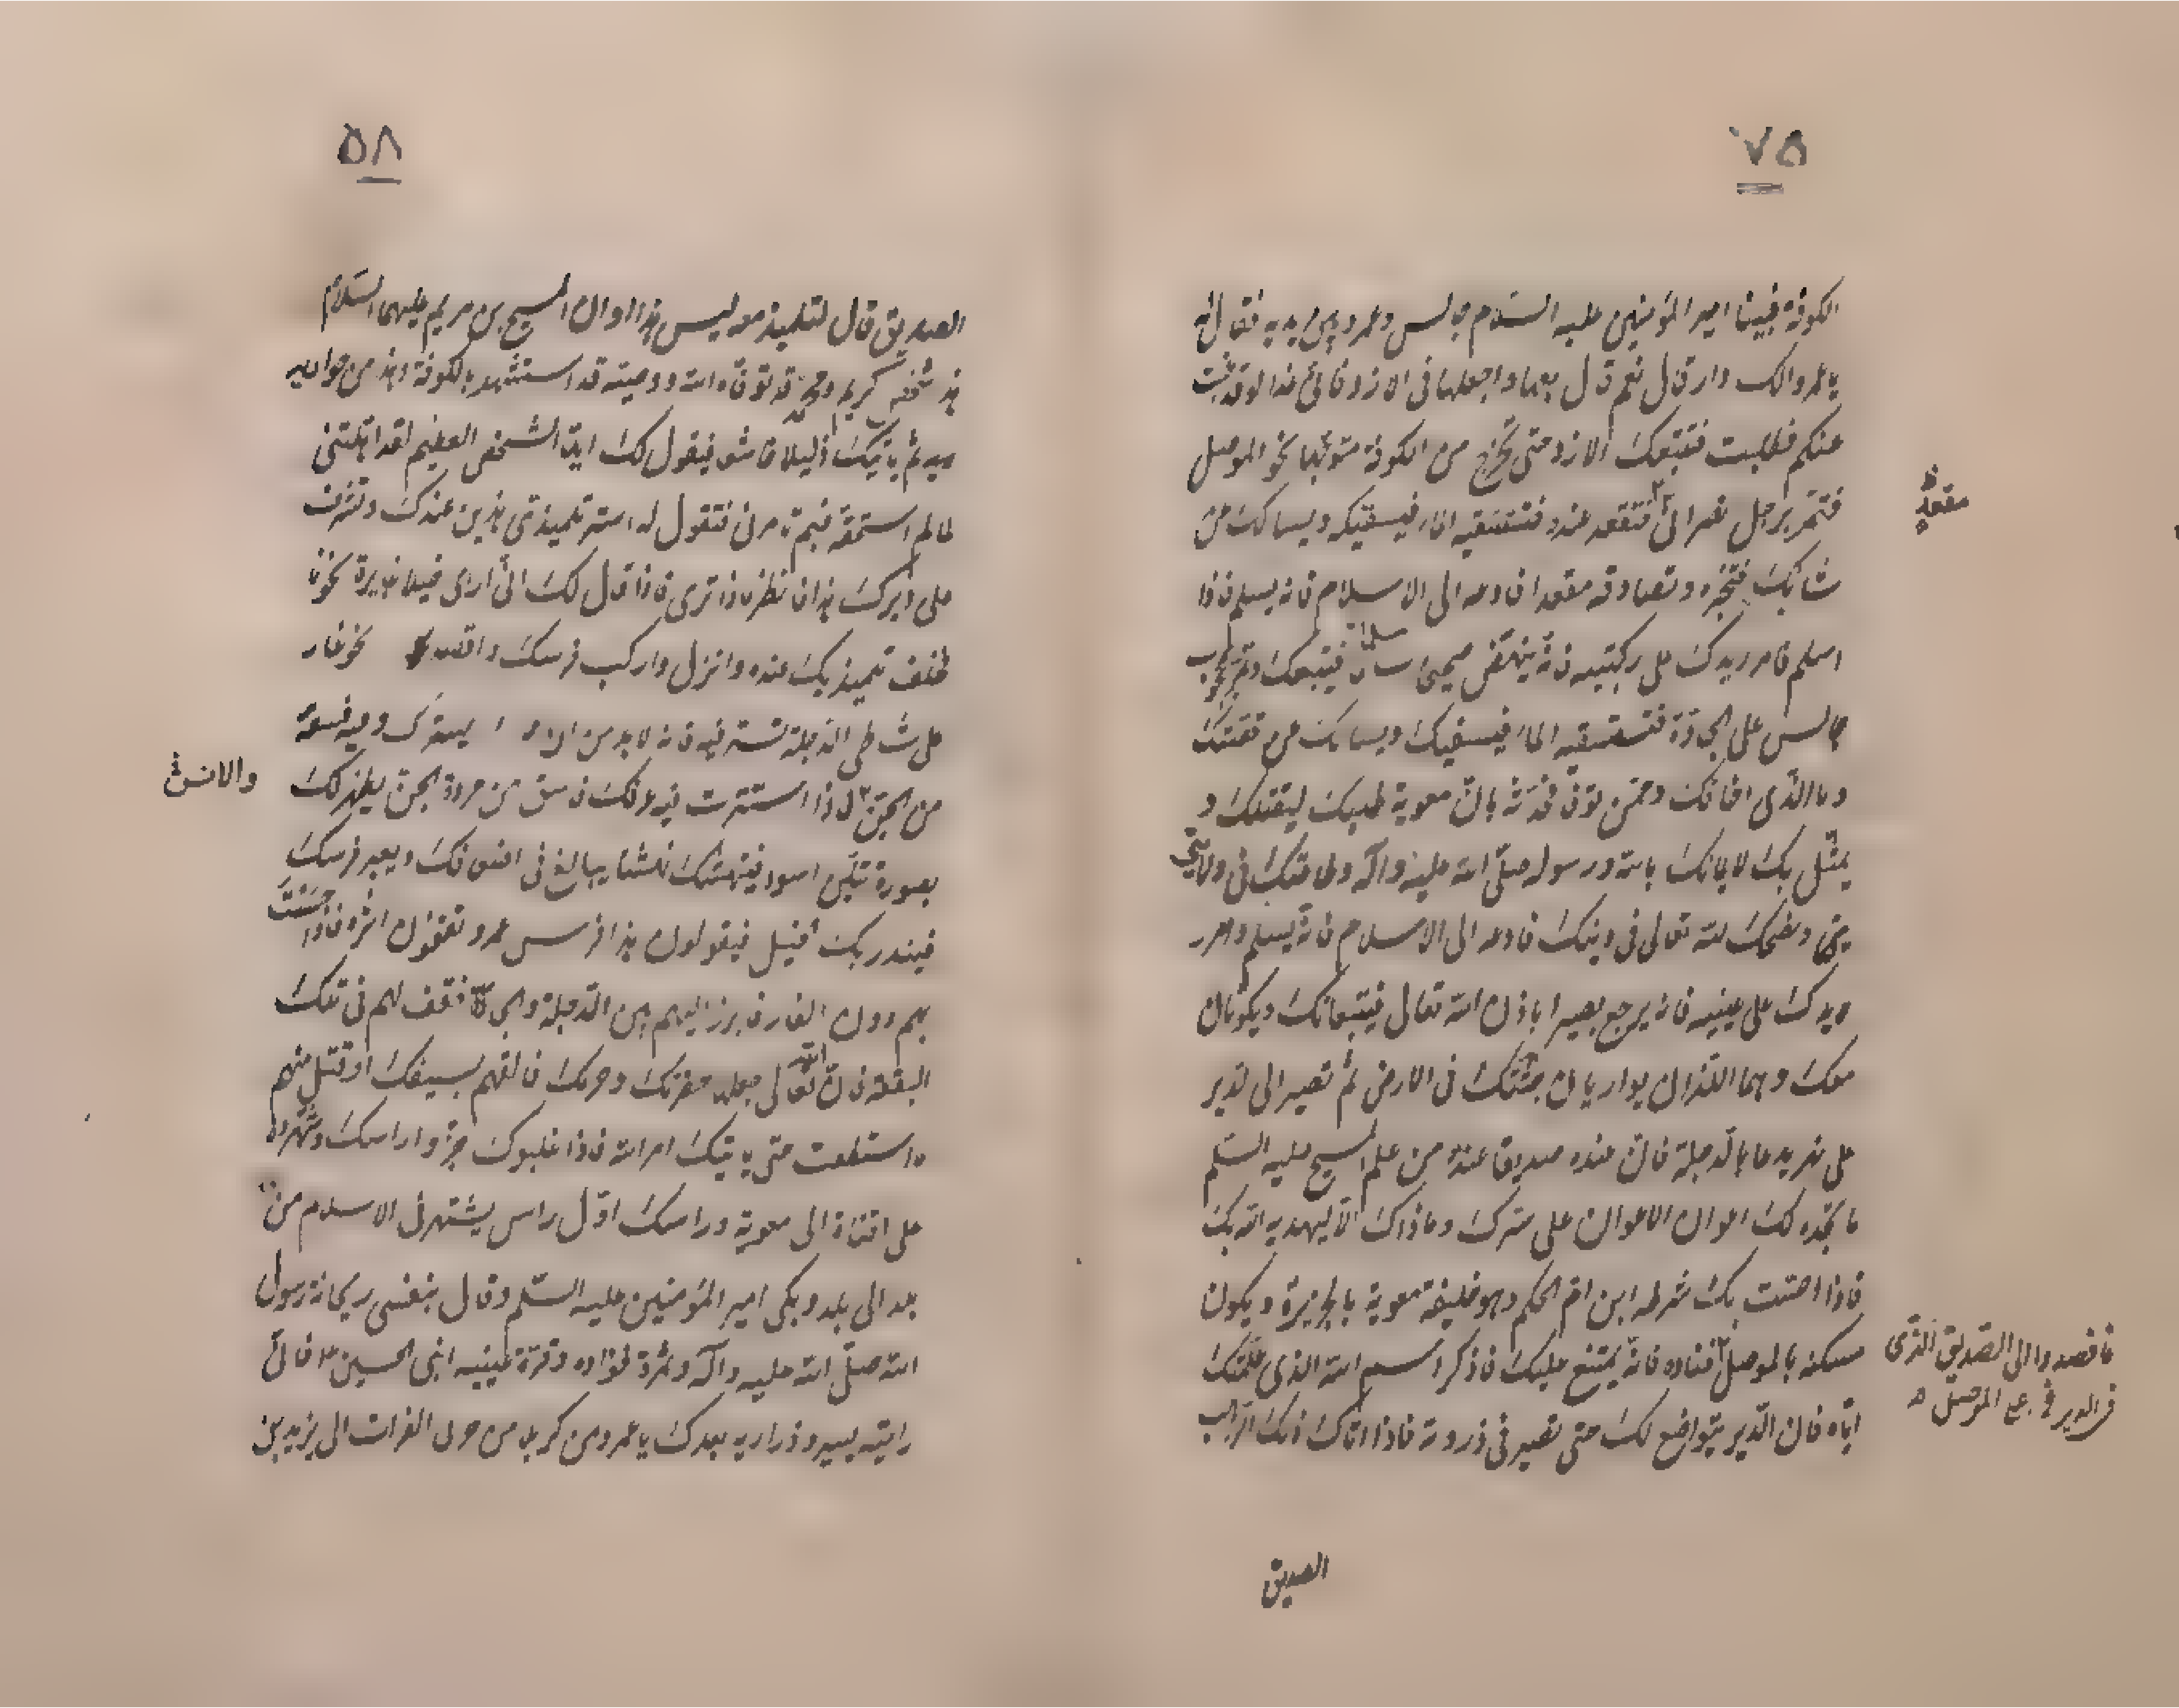 ٥٧
الكوفة فبينا امير المؤمنين عليه السلام جالس وعمرو بين يديه فقال له
يا عمرو الك دار قال نعم قال بعها واجعلها في الازد فاني غدا لو قد غبت
عنكم فطلبت فتتبعك الازد حتى تخرج من الكوفة متوجها نحو الموصل
فتمر برجل نصراني فتقعد عنده فتستسقيه الماء فيسقيكه ويسالك عن
مقعد
شانك فتخبره وتصادفه مقعدا فادعه الى الاسلام فانه يسلم فاذا
اسلم فامرر يدك على ركبتيه فانه ينهض صحيحا سالما فيتبعك وتمر برجل محجوب
جالس على الجادة فتستسقيه الماء فيسقيك ويسالك عن قصتك
وما الذي اخافك وممن توق فحدثه بان معوية طلبك ليقتلك و
يمثل بك لايمانك بالله ورسوله صلى الله عليه وآله وطاعتك في ولايتي
ونصحك لله تعالى في دينك فادعه الى الاسلام فانه يسلم وامرر
يدك على عينيه فانه يرجع بصيرا باذن الله تعالى فيتبعانك ويكونان
معك وهما اللذان يواريان جثتك في الارض ثم تصير الى الدير
على نهر يدعا بالدجلة فان عنده صديقا عنده من علم المسيح عليه السلم
ما تجده لك اعوان الاعوان على سرك وما ذاك الا ليهديه الله بك
فاذا احست بك شرطه ابن ام الحكم وهو خليفة معوية بالجزيرة ويكون
مسكنه بالموصل فناده فانه يمتنع عليك فاذكر اسم الله الذي علمتك
فاقصد الى الصديق الذي
في الدير في الموصل
اياه فان الدير يتواضع لك حتى تصير في ذروته فاذا اتاك ذلك الراهب
الصديق
٥٨
الصديق قال لتلميذ معه ليس هذا اوان المسيح بن مريم عليهما السلام
هذا شخص كريم ومحمد قد توفاه الله ووصيه قد استشهد بالكوفة وهذا من حواريه
ثم ياتيك ذليلا خاشعا فيقول لك ايها الشخص العظيم لقد اهلتني
لما لم استحقه فبم تامرني فتقول له استر تلميذي هذين عندك وتشرف
على ديرك هذا فانظر ماذا ترى فاذا قال لك اني ارى خيلا غايرة نحونا
فخلف تلميذيك عنده وانزل واركب فرسك واقصد نحو غار
على شاطي الدجلة تستتر فيه فانه لابد من ان يسترك وفيه فسقة
من الجن والانس فاذا استترت فيه عرفك فاسق من مردة الجن يظهر لك
بصورة تنين اسود فينهشك نهشا يبالغ في اضعافك ويعبر فرسك
فيندر بك الخيل فيقولون هذا فرس عمرو ويقفون اثره فاذا احسست
بهم دون الغار فابرز اليهم بين الدجلة والجادة فقف لهم في تلك
البقعة فان الله تعالى جعلها حفرتك وحرمك فالقهم بسيفك اقتل منهم
ما استطعت حتى ياتيك امر الله فاذا غلبوك جزوا راسك وشهروه
على قناة الى معوية وراسك اول راس يشتهر في الاسلام من
بلد الى بلد وبكى امير المؤمنين عليه السلم وقال بنفسي ريحانة رسول
الله صلى الله عليه وآله وثمرة فؤاده وقرة عينيه ابني الحسين فاني
رايته يسير وذراريه بعدك يا عمرو من كربلا من حول الفرات الى يزيد بن